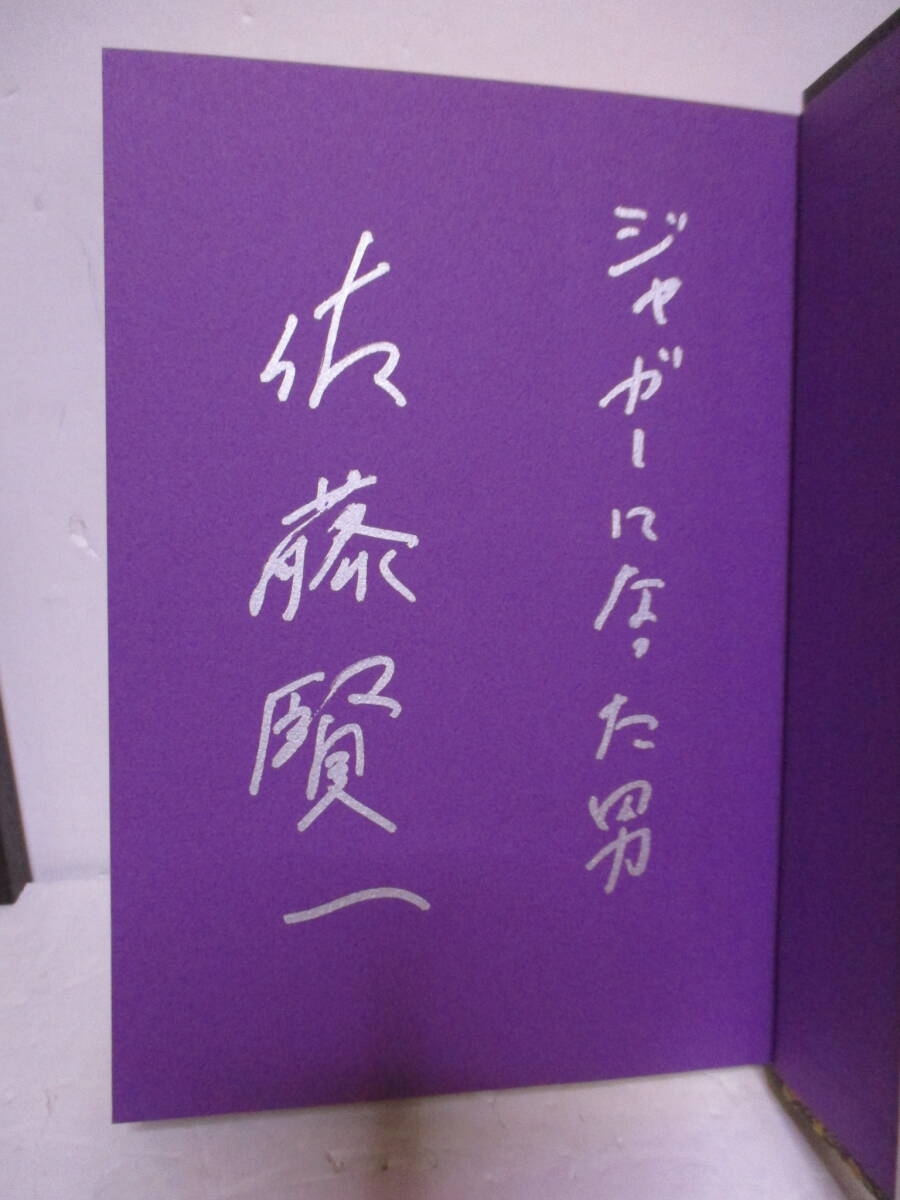 ジャガーになった男
佐藤賢一